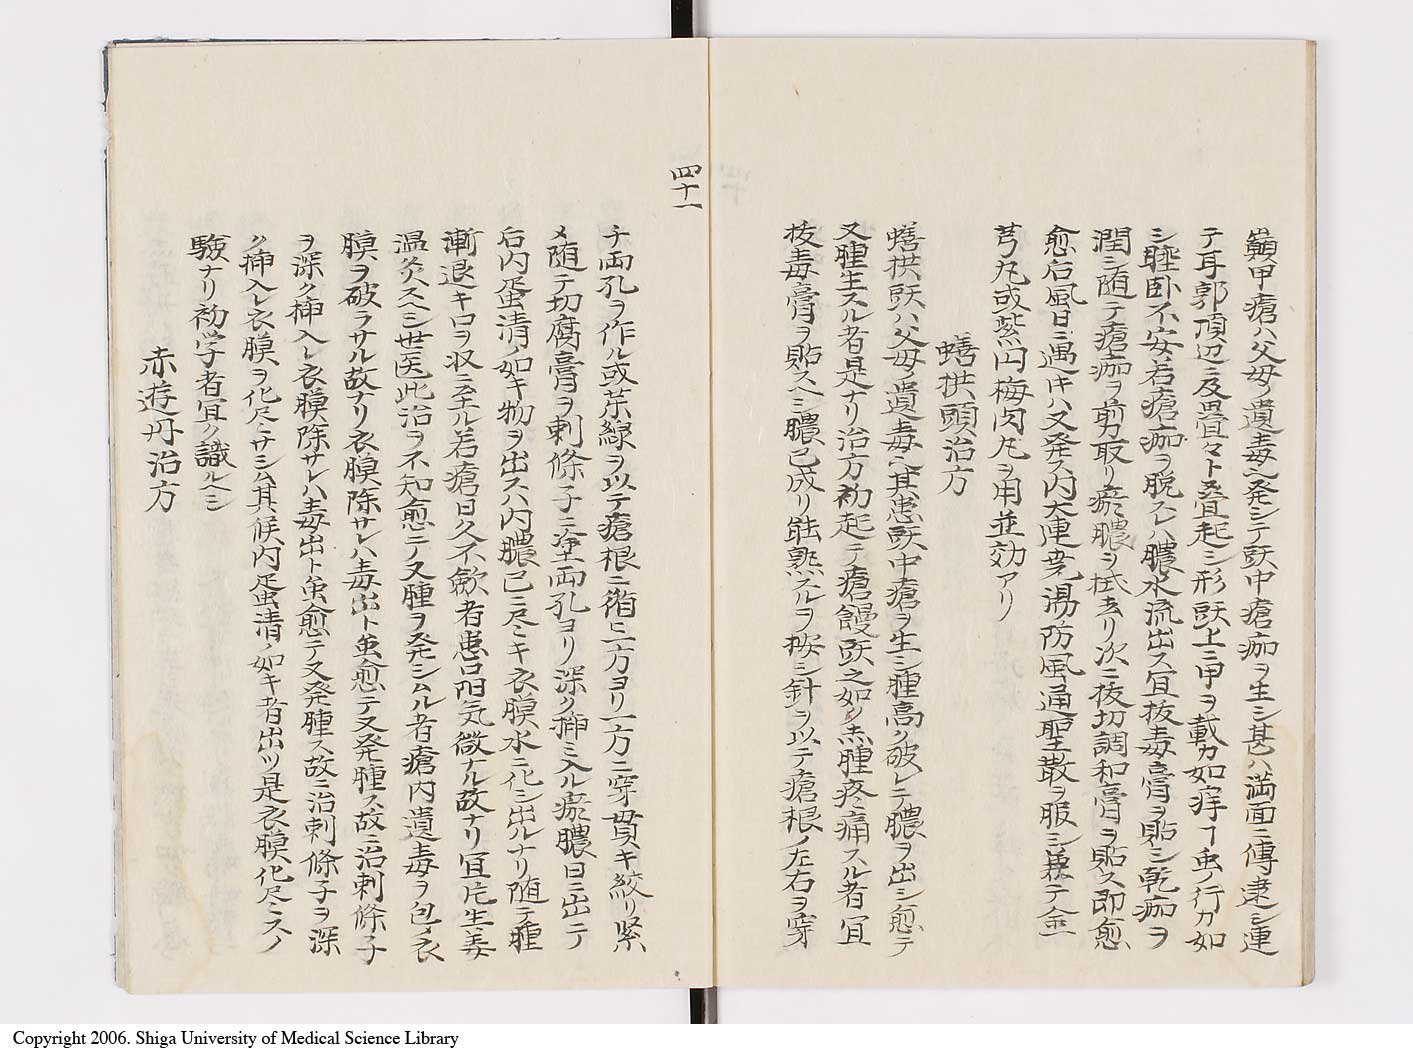 巓甲瘡ハ父母ノ遺毒之発シテ頭中瘡痂ヲ生シ甚ハ満面ニ傳逮シ連
テ耳郭頂辺ニ及畳々ト畳起シ形頭上ニ甲ヲ載カ如痒コト虫ノ行カ如
シ睡卧不安若瘡痂ヲ脱スレハ膿水流出ス宜抜毒膏ヲ貼シ乾痂ヲ
潤シ随テ瘡痂ヲ剪取リ瘀膿ヲ拭去リ次ニ抜切調和膏ヲ貼ス即愈
愈后風日ニ遇キハ又発ス内大連翹湯防風通聖散ヲ服シ兼テ金
芎丸或紫円梅肉丸ヲ用並効アリ
蟮拱頭治方
蟮拱頭ハ父母ノ遺毒ニ其患頭中瘡ヲ生シ腫高ク破レテ膿ヲ出シ愈テ
又腫生スル者是ナリ治方初起テ瘡饅頭之如ク焮腫疼痛スル者宜
抜毒膏ヲ貼スヘシ膿已成リ能熟スルヲ按シ針ヲ以テ瘡根ノ左右ヲ穿
四十一
チ両孔ヲ作ル或茶線ヲ以テ瘡根ニ循ヒ一方ヨリ一方ニ穿貫キ絞リ緊
メ随テ切腐膏ヲ剌條子ニ塗両孔ヨリ深ク挿ミ入ル瘀膿日ニ出ニテ
后内蛋清ノ如キ物ヲ出スハ内膿已ニ尽ミキ衣膜水ニ化シ出ルナリ随テ腫
漸退キ口ヲ収ニ至ル若瘡日久不歛者患口陽気微ナル故ナリ宜片生姜
温灸スヘシ世医此治ヲ不知愈ニテ又腫ヲ発シムル者瘡内遺毒ヲ包ノ衣
膜ヲ破ラサル故ナリ衣膜除サレハ毒出ト虽愈テ又発腫ス故ニ治剌條子
ヲ深ク挿入レ衣膜除サレハ毒出ト虽愈テ又発腫ス故ニ治剌條子ヲ深
ク挿入レ衣膜ヲ化尽ミサシム其候内蛋清ノ如キ者出ツ是衣膜化尽ミスノ
験ナリ初学者宜ク識ルヘシ
赤遊丹治方
Copyright 2006. Shiga University of Medical Science Library